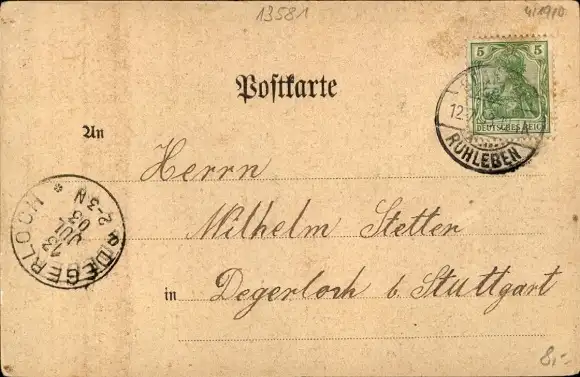 13581
Postkarte
5 5
DEUTSCHES REICH
RUHLEBEN
An
Herrn
Wilhelm Stetter
in Degerloch b. Stuttgart
DEGERLOCH *
13
JUL
03
2-3 N
8,-